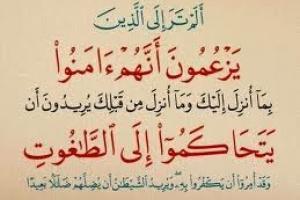 أَلَمْ تَرَ إِلَى الَّذِينَ
يَزْعُمُونَ أَنَّهُمْ ءَامَنُوا۟
بِمَا أُنزِلَ إِلَيْكَ وَمَا أُنزِلَ مِن قَبْلِكَ يُرِيدُونَ أَن
يَتَحَاكَمُوٓا۟ إِلَى ٱلطَّـٰغُوتِ
وَقَدْ أُمِرُوٓا۟ أَن يَكْفُرُوا۟ بِهِۦ وَيُرِيدُ ٱلشَّيْطَـٰنُ أَن يُضِلَّهُمْ ضَلَـٰلًۢا بَعِيدًا